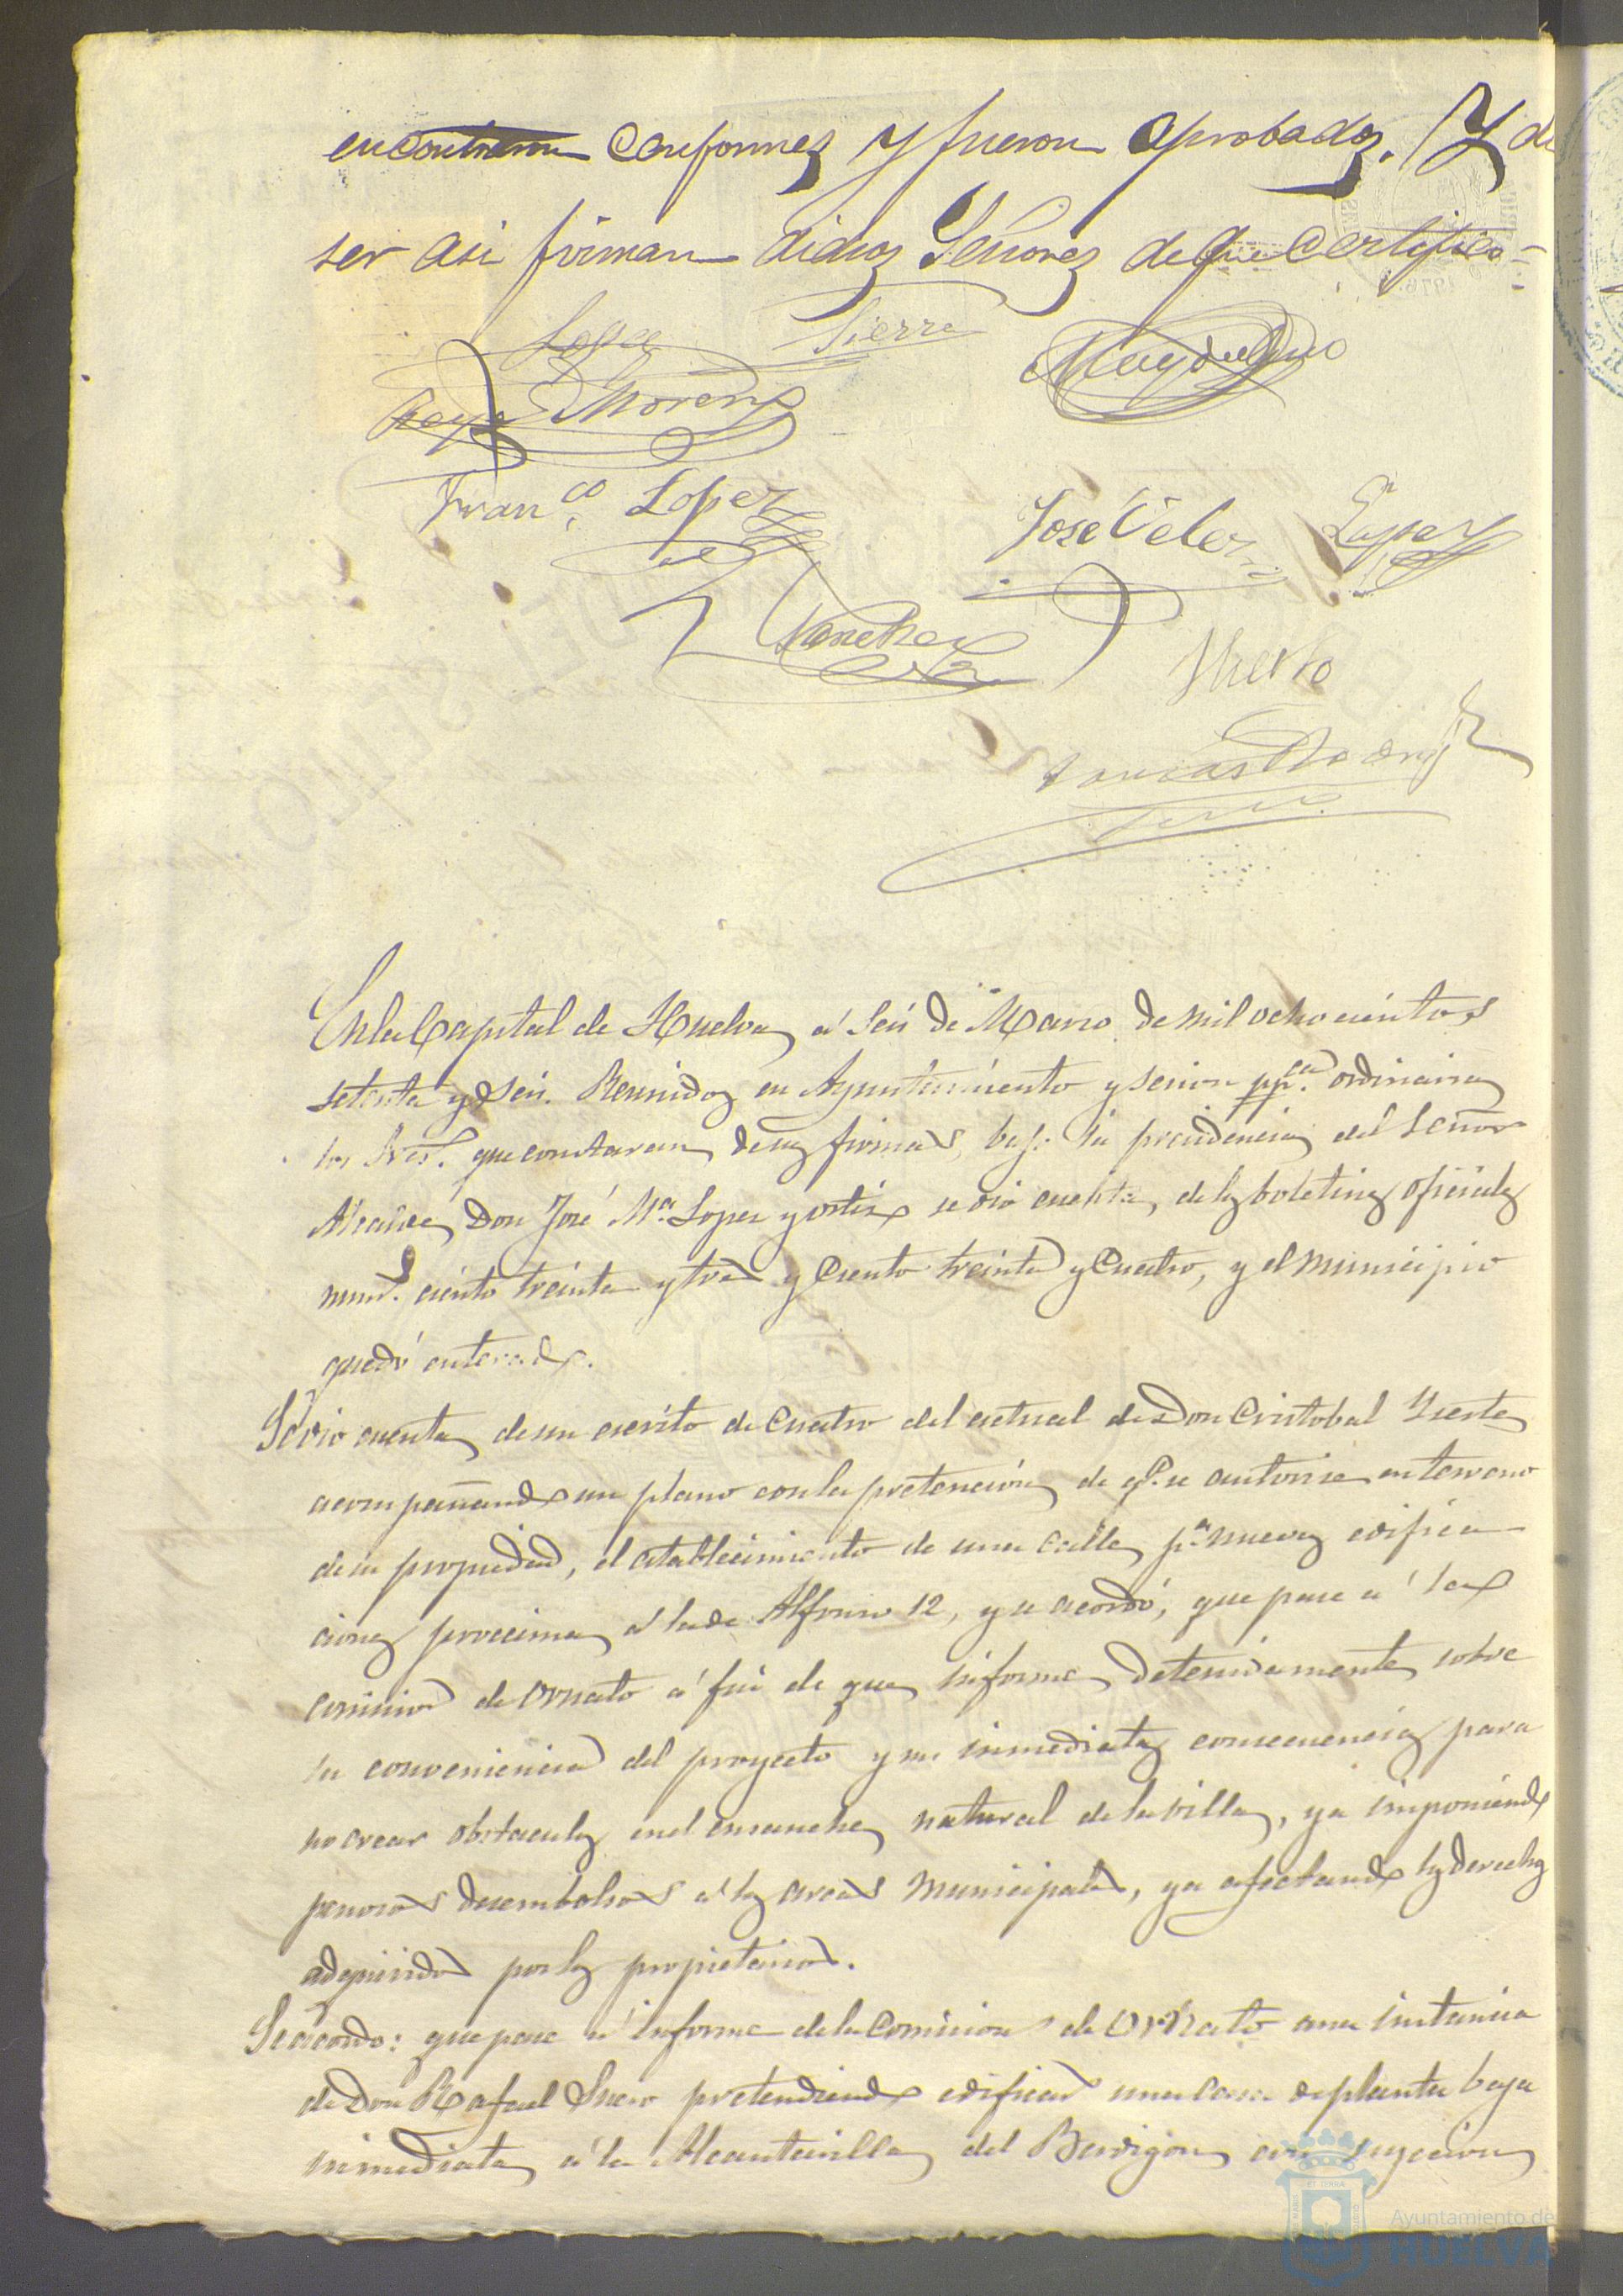 encontraron conformes y fueron aprobados. Y de
ser asi firman dichos Señores de que certifico =
Sierra
Moreno
Franco Lopez
Jose Velez
Lopez
Sanchez
En la Capital de Huelva, á seis de Marzo de mil ocho cientos
setenta y seis. Reunidos en Ayuntamiento y sesion ppca. ordinaria
los Sres. que constaran de sus firmas, bajo la presidencia del Señor
Alcalde, Don José Ma. Lopez y Ortiz se dio cuenta, de los boletines oficiales
nums. ciento treinta y tres y ciento treinta y cuatro, y el municipio
quedó enterado.
Se dio cuenta, de un escrito de cuatro del actual de Don Cristobal Yneste
acompañando un plano con la pretencion, de qe. se autorise en terreno
de su propiedad, el establecimiento de una calle, pa. nuevas edifica
ciones procsima, á la de Alfonso 12, y se acordó, que pase á la
comision de ornato á fin de que, informe, detenidamente, sobre
la conveniencia del proyecto y sus inmediatas consecuencias para
no crear obstaculos en el ensanche, natural de la villa, ya imponiendo
penosos desembolsos á las arcas municipales, ya afectando los derechos
adquiridos por los propietarios.
Se acordó: que pase á informe de la Comision de Ornato una instancia
de Don Rafael Suero pretendiendo edificar una casa de planta baja
inmediata, á la Alcantarilla, del Berdigon, con sugecion
Ayuntamiento de
HUELVA